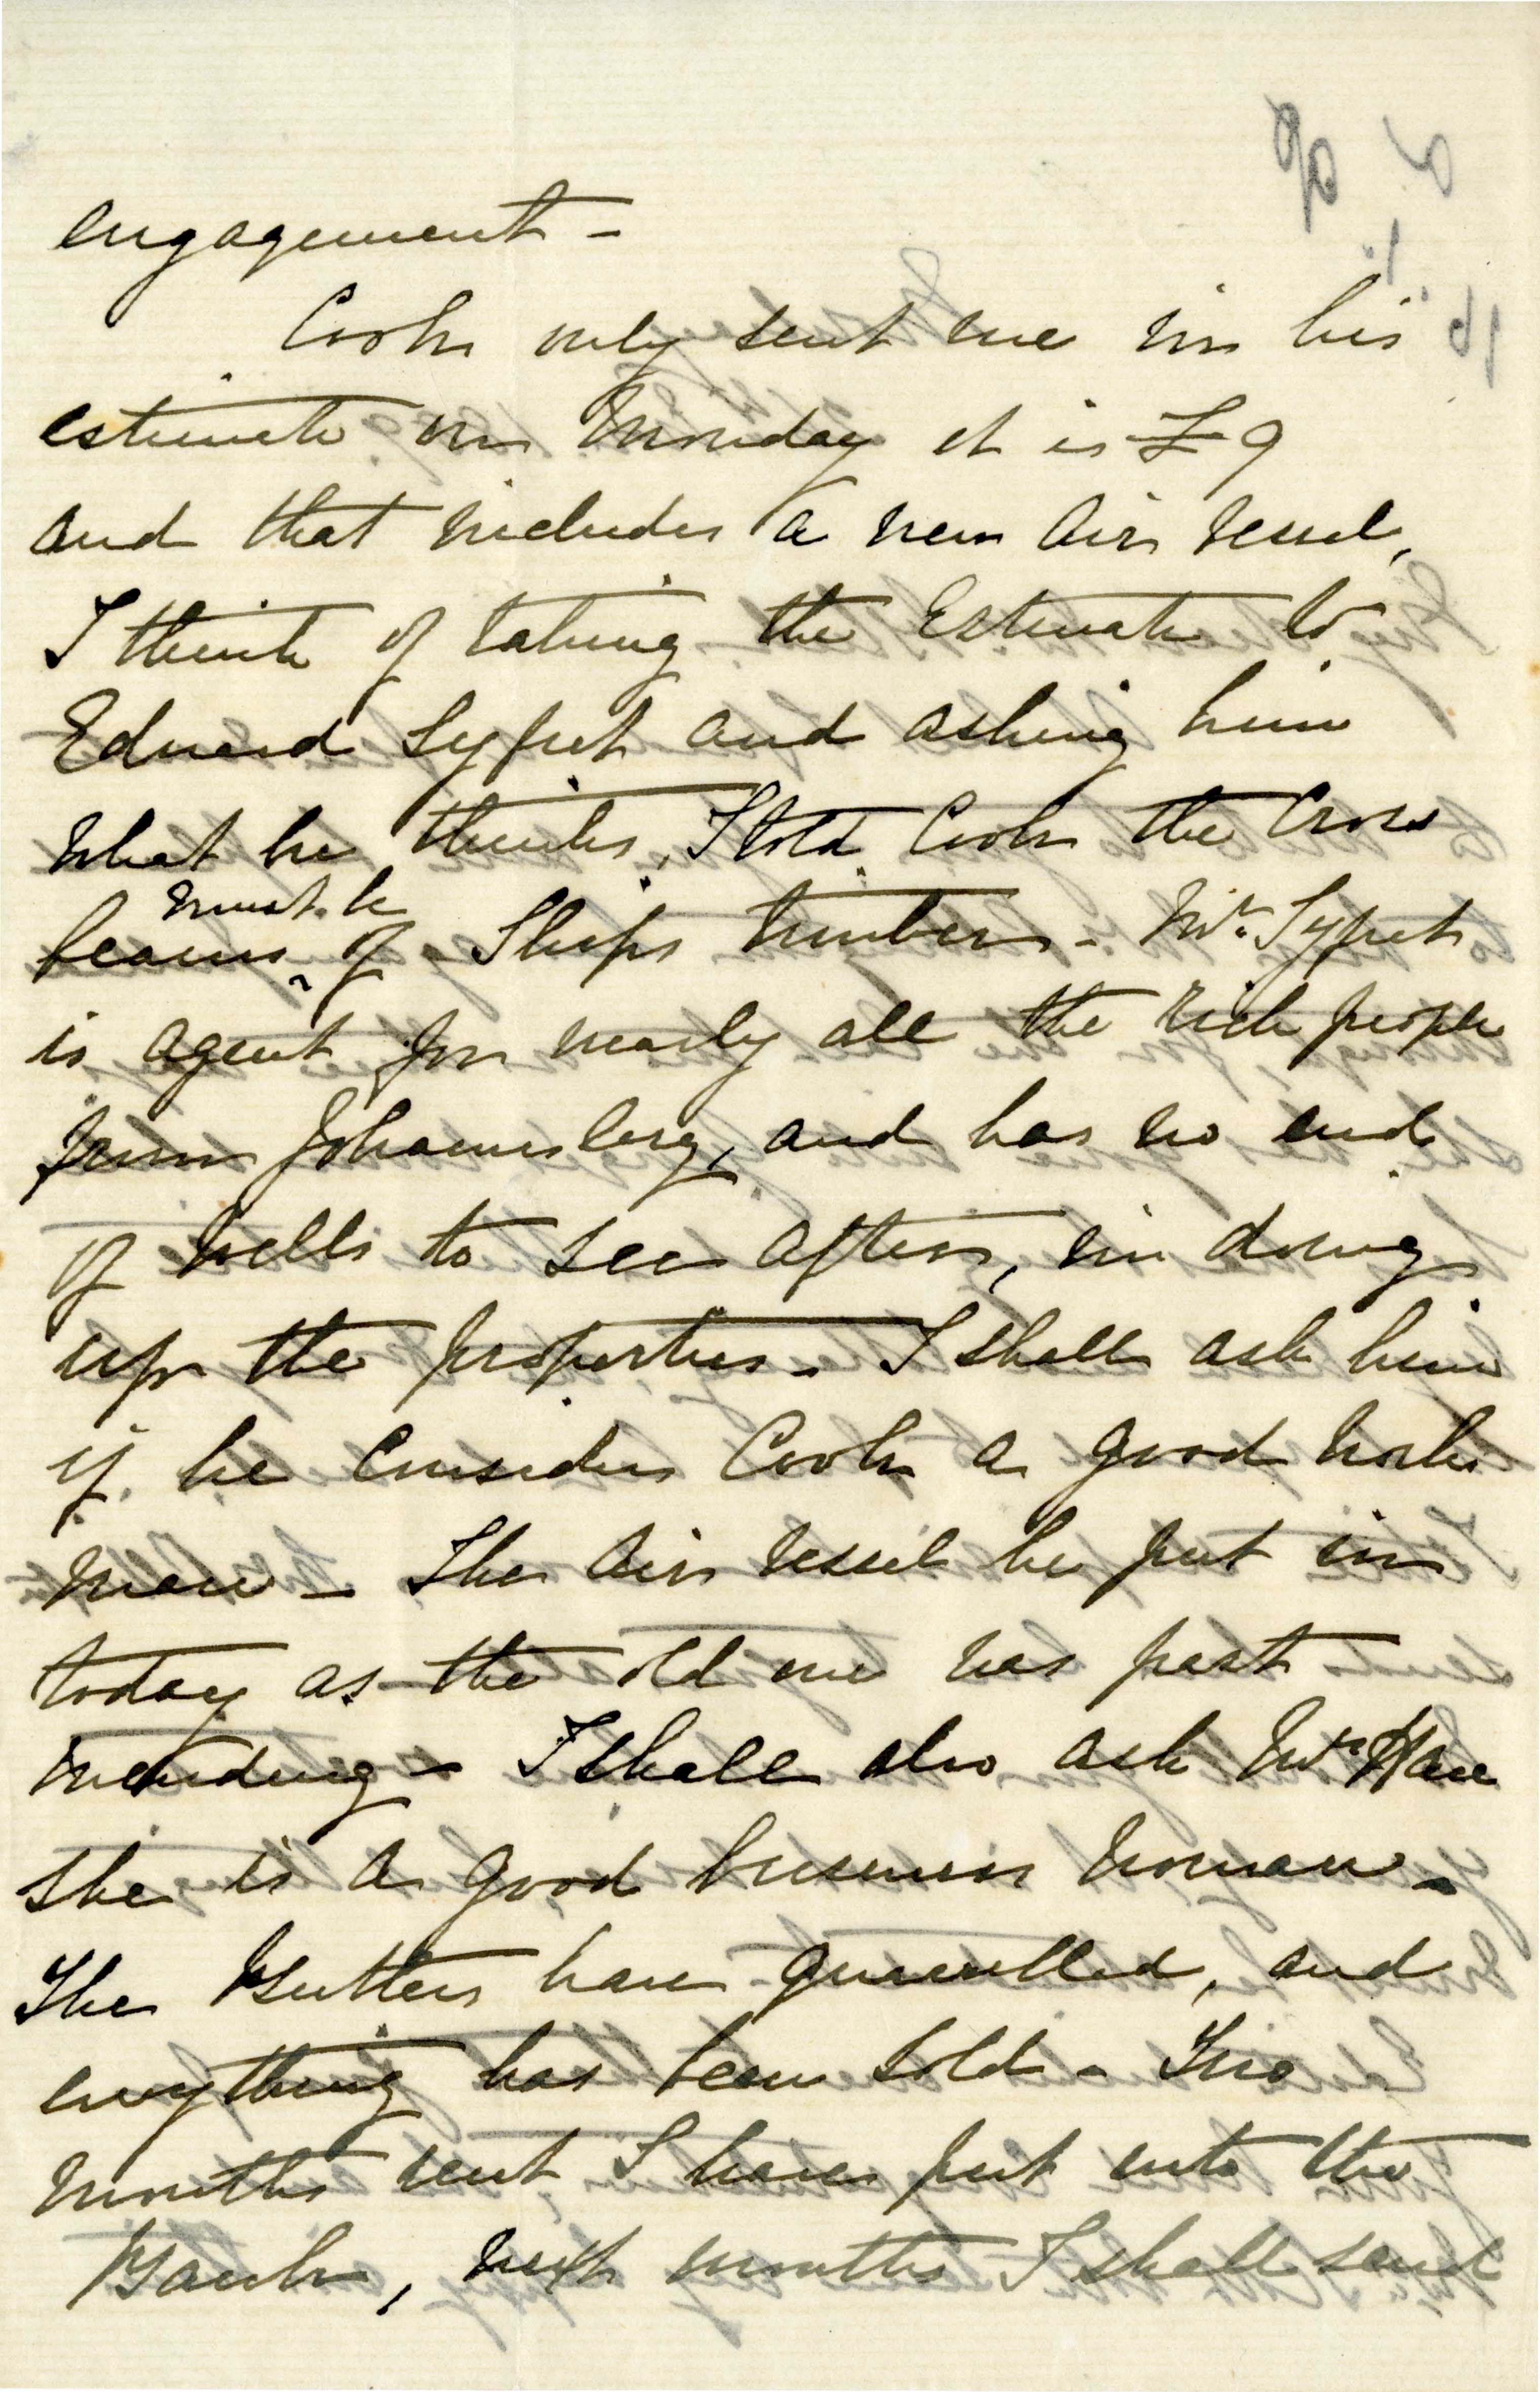 engagement -
Cook only sent me in his
estimate on Monday it is £9
and that includes a new air vessel,
I think of taking the Estimate to
Edward Syfret and asking him
what he thinks, I told Cook the Cross
beams must be of Ships timbers - Mr. Syfret
is agent for nearly all the rich people
from Johannesberg, and has no end
of wells to see after, in doing
up the properties - I shall ask him
if he considers Cook a good work
man - The air vessel he put in
today as the old one was past
mending - I shall also ask Mrs
she is a good business woman -
The Butters have quarrelled, and
everything has been sold - Two
months rent I have put into the
Bank, next months I shall send